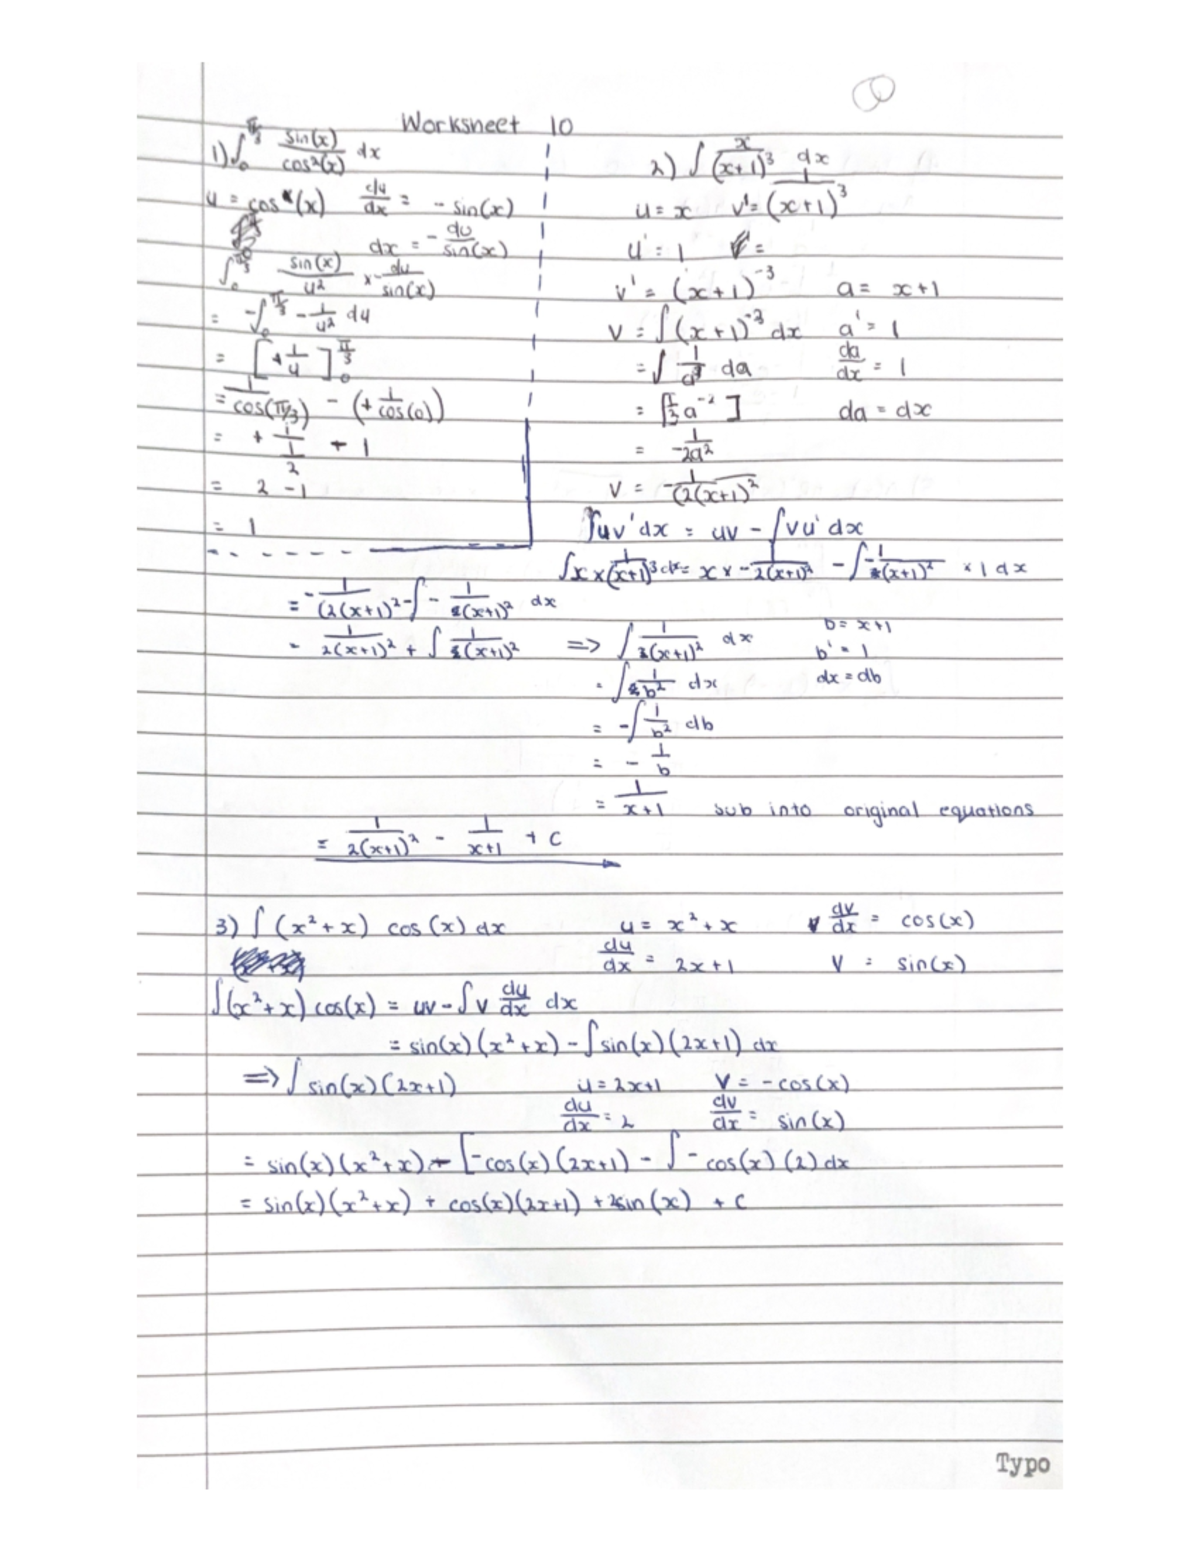 Worksheet 10
1) ∫₀^(π/3) sin(x)/cos²(x) dx
u = cos(x) du/dx = - sin(x)
dx = - du/sin(x)
∫₀^(π/3) sin(x)/u² × - du/sin(x)
= -∫₀^(π/3) - 1/u² du
= [+ 1/u]₀^(π/3)
= 1/cos(π/3) - (+ 1/cos(0))
= + 1/(1/2) - 1
= 2 - 1
= 1
2) ∫ x/(x+1)³ dx
u = x v' = 1/(x+1)³
u' = 1
v' = (x+1)⁻³ a = x+1
v = ∫(x+1)⁻³ dx a' = 1
= ∫ 1/a³ da da/dx = 1
da = dx
= 1/-2a²
v = -1/(2(x+1)²
∫uv' dx = uv - ∫vu' dx
∫x × 1/(x+1)³ dx = x × - 1/2(x+1)² - ∫ - 1/(x+1)² × 1 dx
= - 1/(2(x+1)² - ∫ - 1/(x+1)² dx
= 1/2(x+1)² + ∫ 1/(x+1)²
=> ∫ 1/(x+1)² dx b = x+1
b' = 1
= ∫ 1/b² dx dx = db
= -∫ 1/b² db
= - 1/b
= 1/x+1 sub into original equations
= 1/2(x+1)² - 1/x+1 + C
3) ∫ (x² + x) cos(x) dx u = x² + x dv/dx = cos(x)
du/dx = 2x+1 v = sin(x)
∫(x² + x) cos(x) = uv - ∫v du/dx dx
= sin(x)(x² + x) - ∫sin(x)(2x+1) dx
=> ∫ sin(x)(2x+1) u = 2x+1 v = -cos(x)
du/dx = 2 dv/dx = sin(x)
= sin(x)(x² + x) - [-cos(x)(2x+1) - ∫ - cos(x)(2) dx
= sin(x)(x² + x) + cos(x)(2x+1) + 2sin(x) + C
Typo